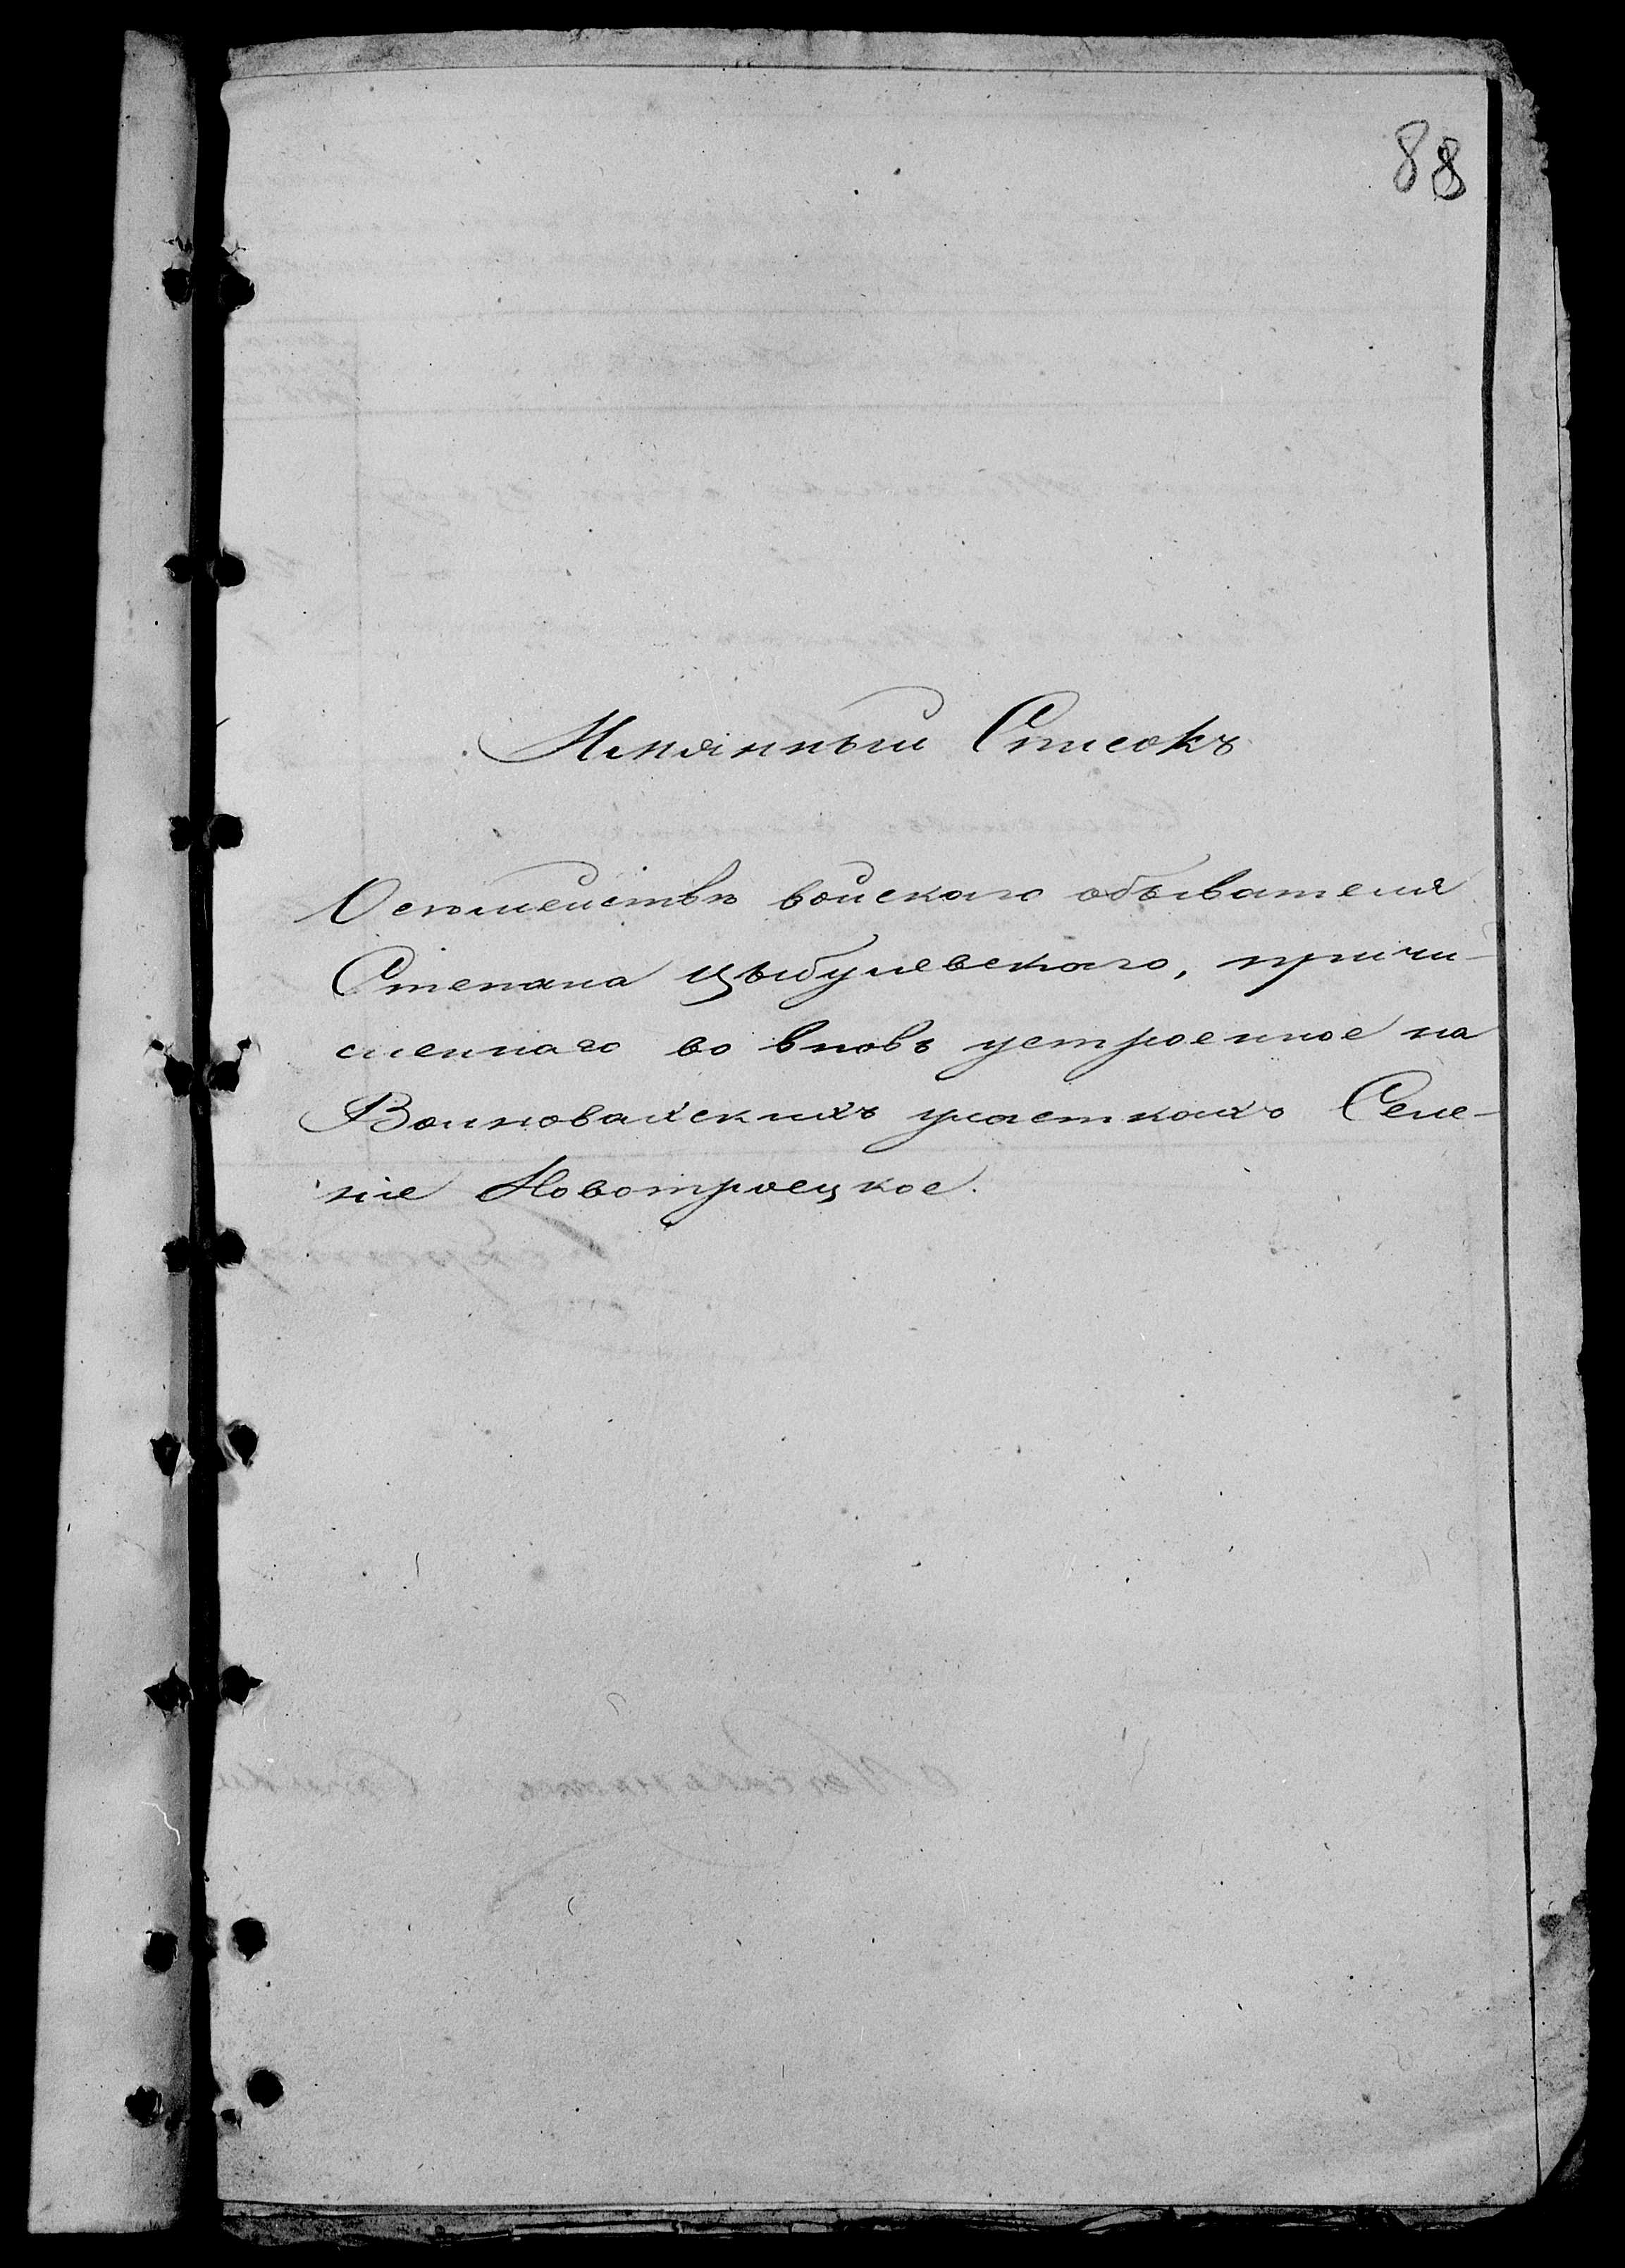 88
Имянный Списокъ
О семействѣ войскаго обывателя
Степана Цыбулевскаго, причи-
сленнаго во вновь устроенное на
Волновахскихъ участкахъ Селе-
ніе Новотроецкое.